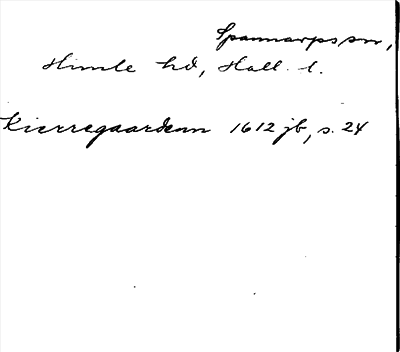 Spannarps sn,
Himle hd, Hall. l.
Kierregaardenn 1612 jb, s. 24